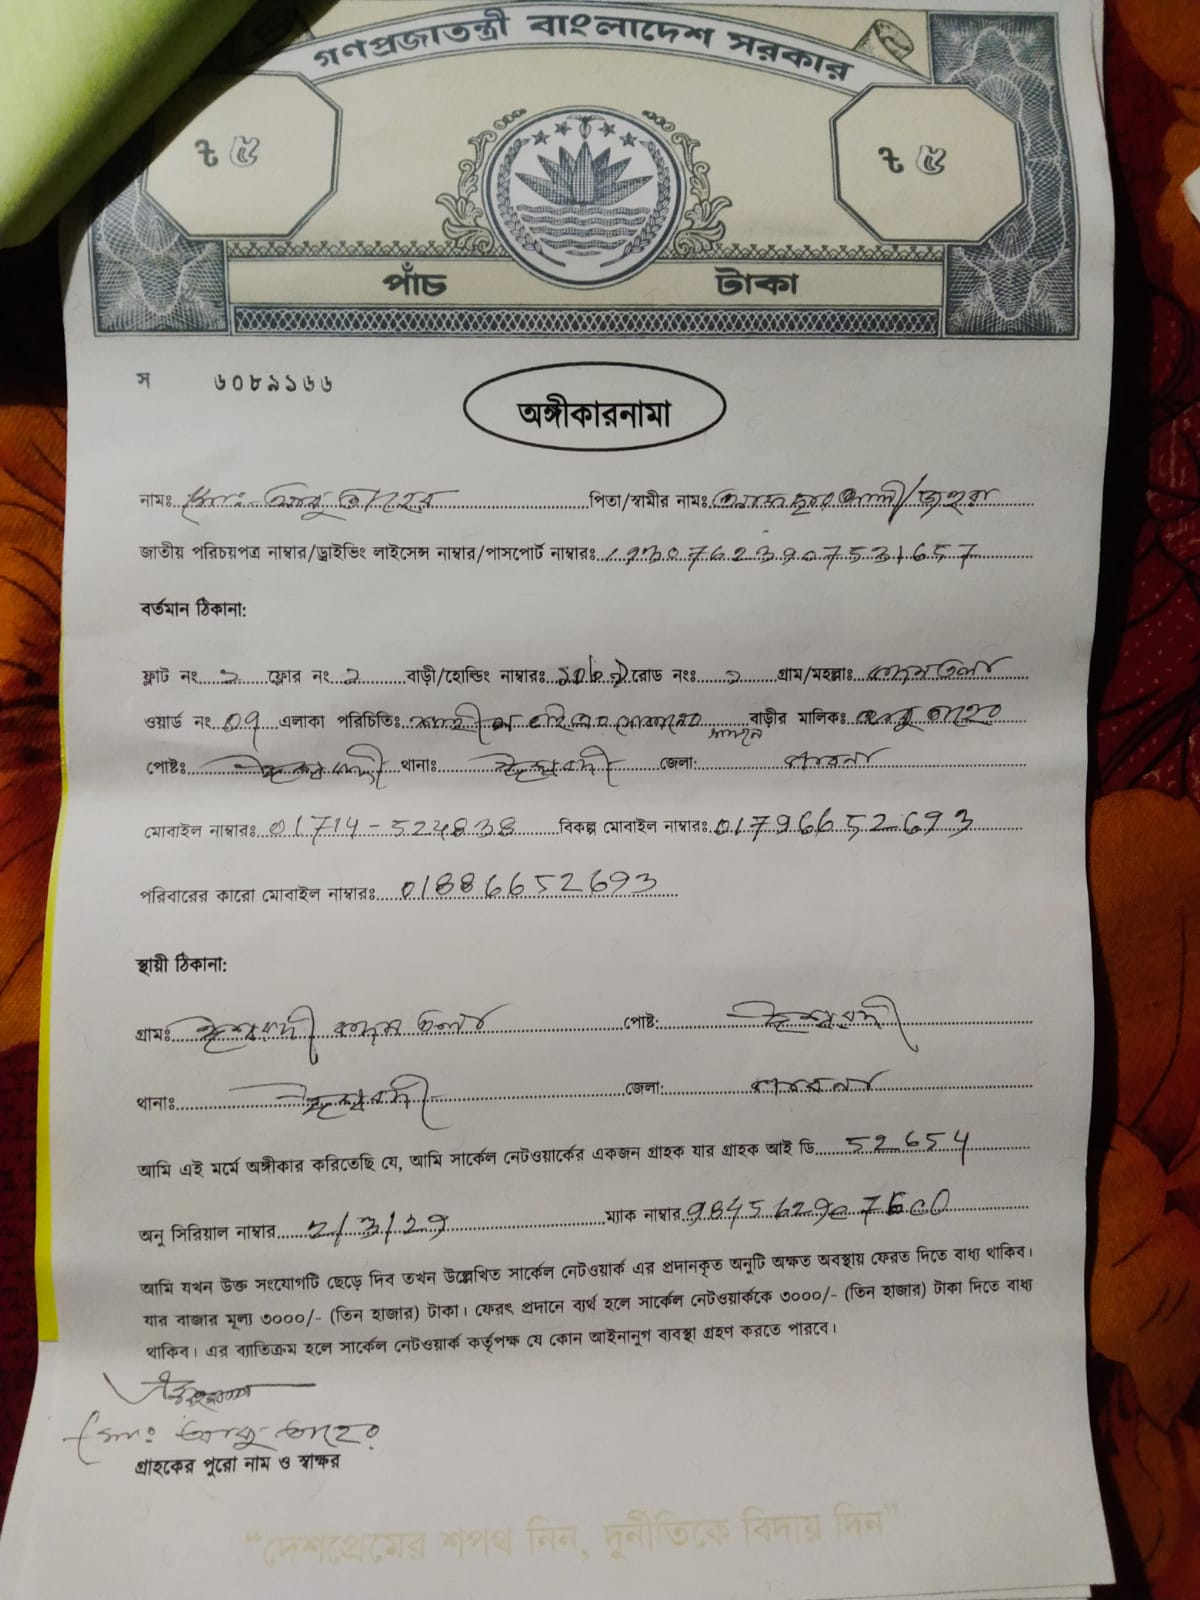 গণপ্রজাতন্ত্রী বাংলাদেশ সরকার
৳ ৫ ৳ ৫
পাঁচ টাকা
স ৬০৮৯১৬৬
অঙ্গীকারনামা
নামঃ মোঃ আবু তাহের পিতা/স্বামীর নামঃ
জাতীয় পরিচয়পত্র নাম্বার/ড্রাইভিং লাইসেন্স নাম্বার/পাসপোর্ট নাম্বারঃ
বর্তমান ঠিকানা:
ফ্লাট নং ফ্লোর নং বাড়ী/হোল্ডিং নাম্বারঃ রোড নংঃ গ্রাম/মহল্লাঃ
ওয়ার্ড নং 09 এলাকা পরিচিতিঃ বাড়ীর মালিকঃ আবু তাহের
পোষ্টঃ ঈশ্বরদী থানাঃ ঈশ্বরদী জেলা: পাবনা
মোবাইল নাম্বারঃ 01714-524838 বিকল্প মোবাইল নাম্বারঃ 01796652693
পরিবারের কারো মোবাইল নাম্বারঃ 01886652693
স্থায়ী ঠিকানা:
গ্রামঃ ঈশ্বরদী পোষ্ট: ঈশ্বরদী
থানাঃ ঈশ্বরদী জেলা: পাবনা
আমি এই মর্মে অঙ্গীকার করিতেছি যে, আমি সার্কেল নেটওয়ার্কের একজন গ্রাহক যার গ্রাহক আই ডি 52654
অনু সিরিয়াল নাম্বার 2/3/29 ম্যাক নাম্বার
আমি যখন উক্ত সংযোগটি ছেড়ে দিব তখন উল্লেখিত সার্কেল নেটওয়ার্ক এর প্রদানকৃত অনুটি অক্ষত অবস্থায় ফেরত দিতে বাধ্য থাকিব।
যার বাজার মূল্য ৩০০০/- (তিন হাজার) টাকা। ফেরৎ প্রদানে ব্যর্থ হলে সার্কেল নেটওয়ার্ককে ৩০০০/- (তিন হাজার) টাকা দিতে বাধ্য
থাকিব। এর ব্যতিক্রম হলে সার্কেল নেটওয়ার্ক কর্তৃপক্ষ যে কোন আইনানুগ ব্যবস্থা গ্রহণ করতে পারবে।
মোঃ আবু তাহের
গ্রাহকের পুরো নাম ও স্বাক্ষর
“দেশপ্রেমের শপথ নিন, দুর্নীতিকে বিদায় দিন”